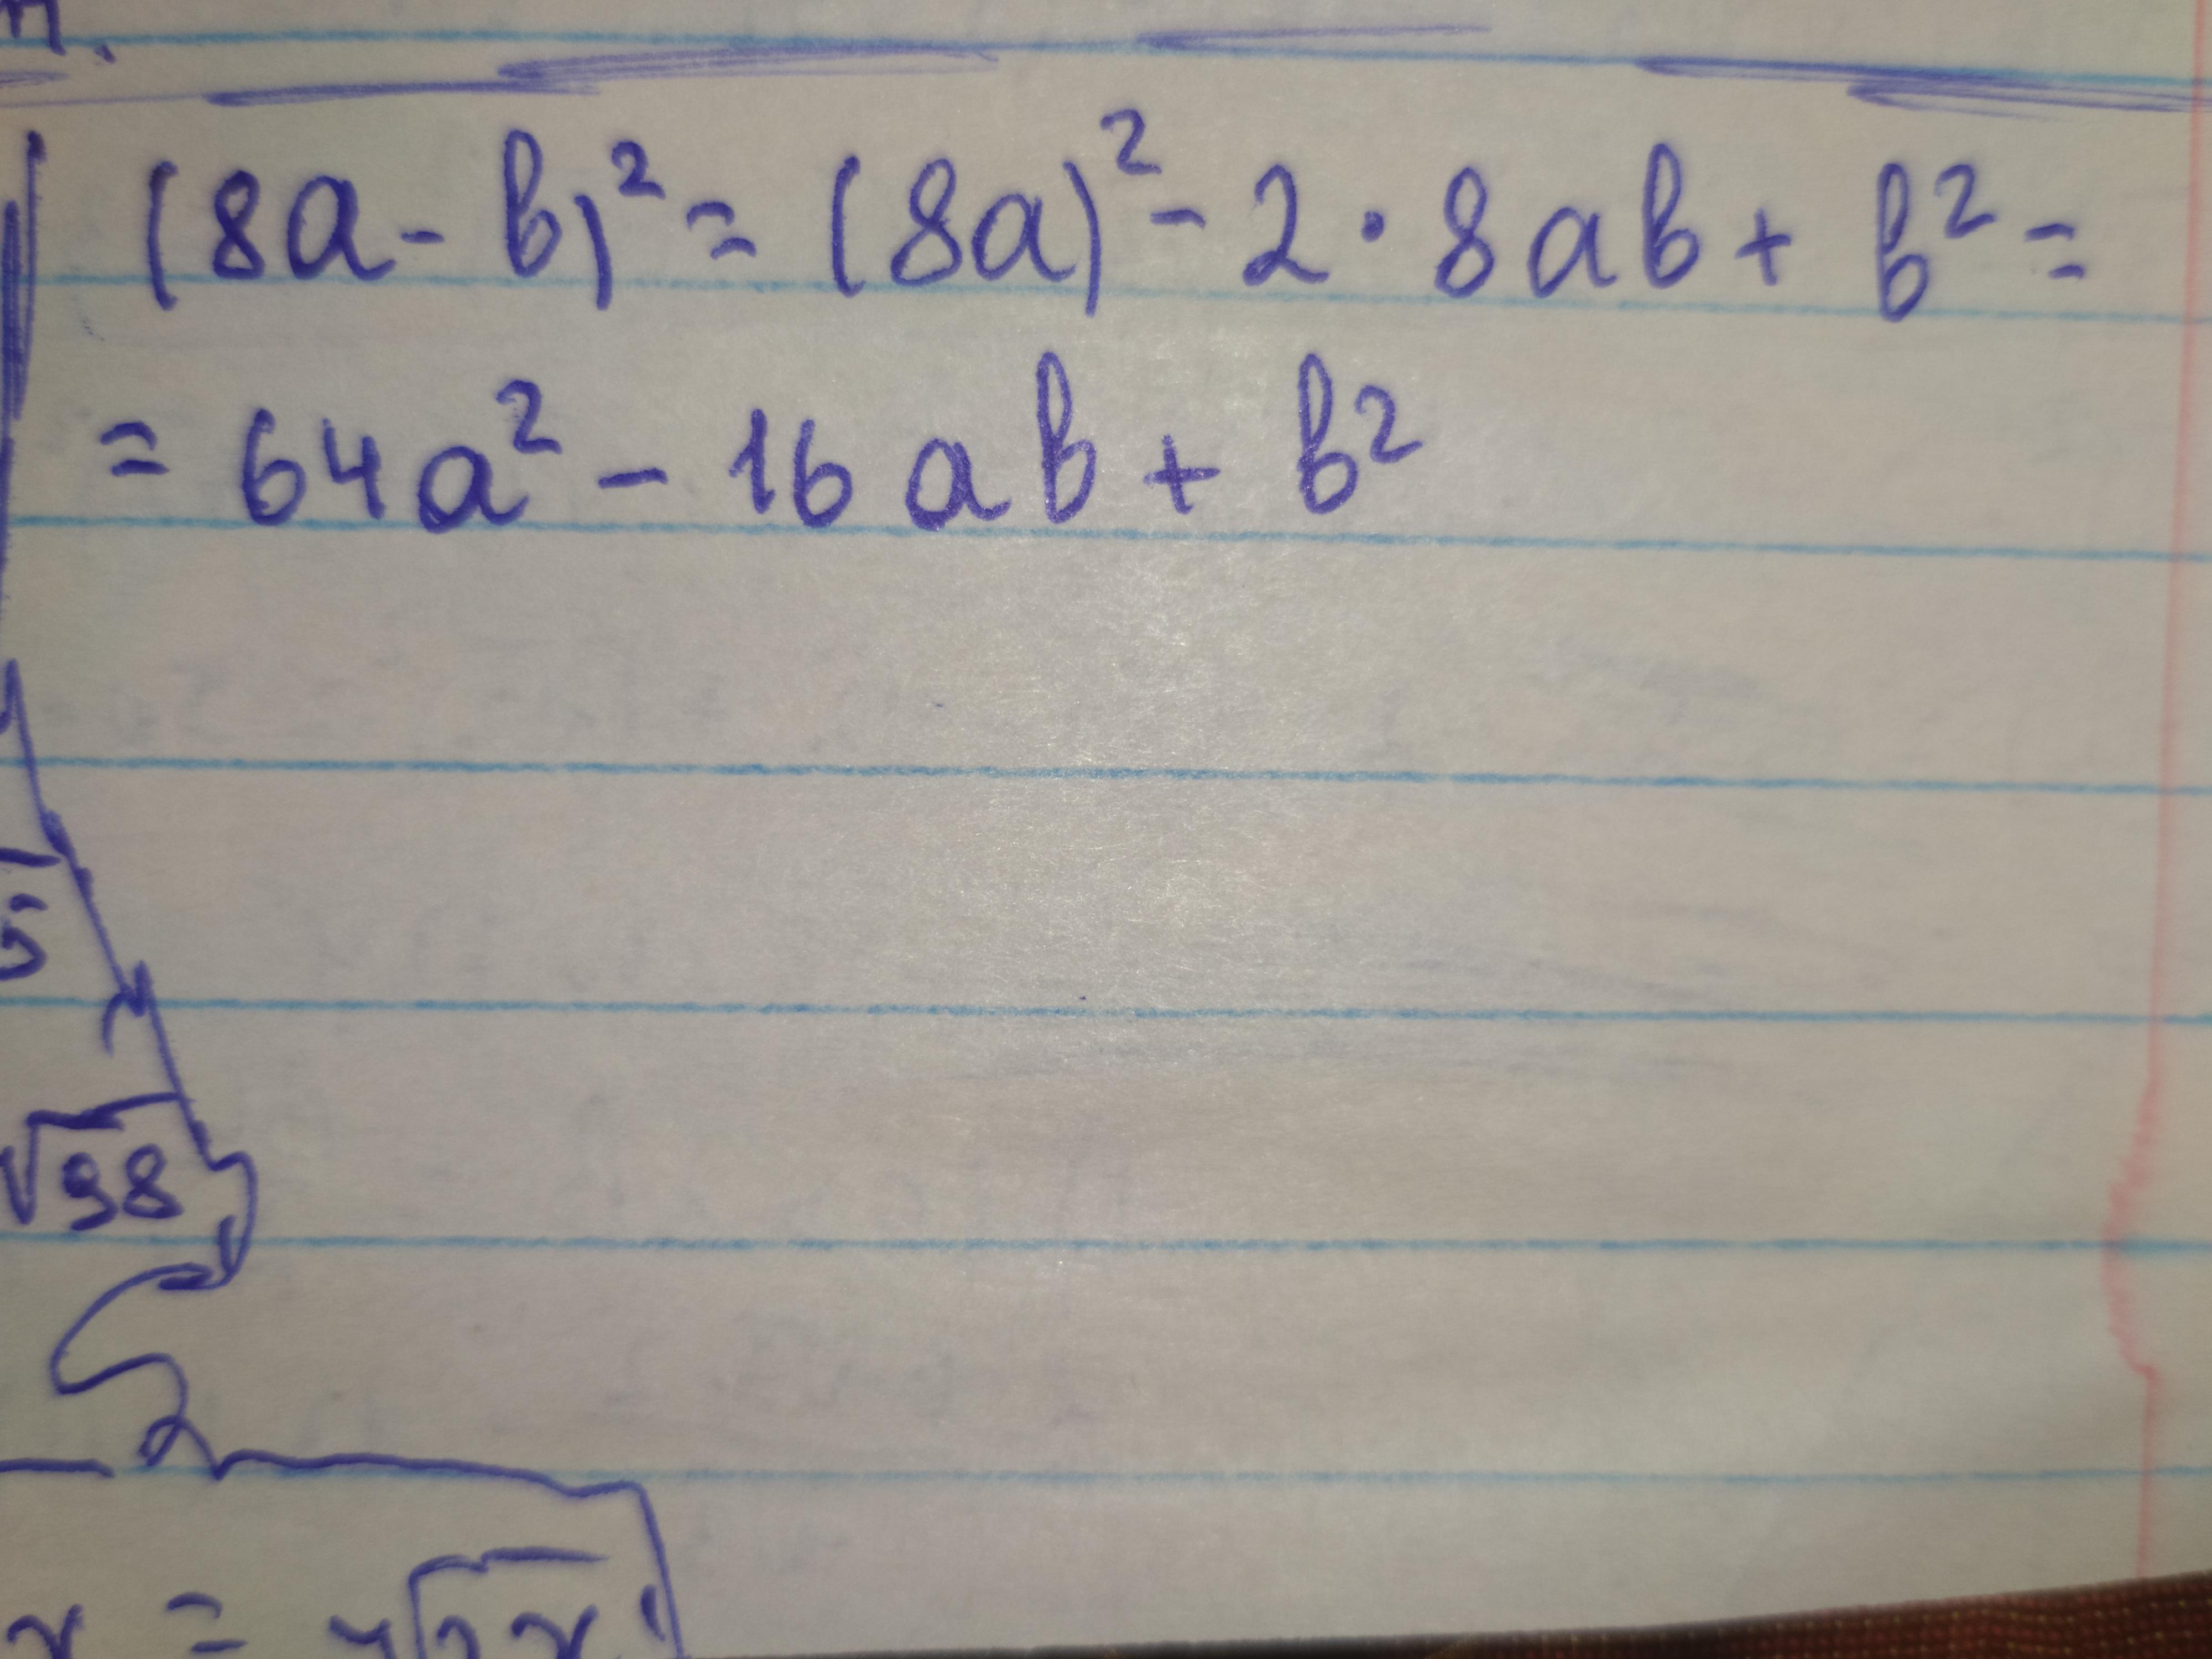 (8a - b)² = (8a)² - 2 · 8ab + b² =
= 64a² - 16ab + b²
√98